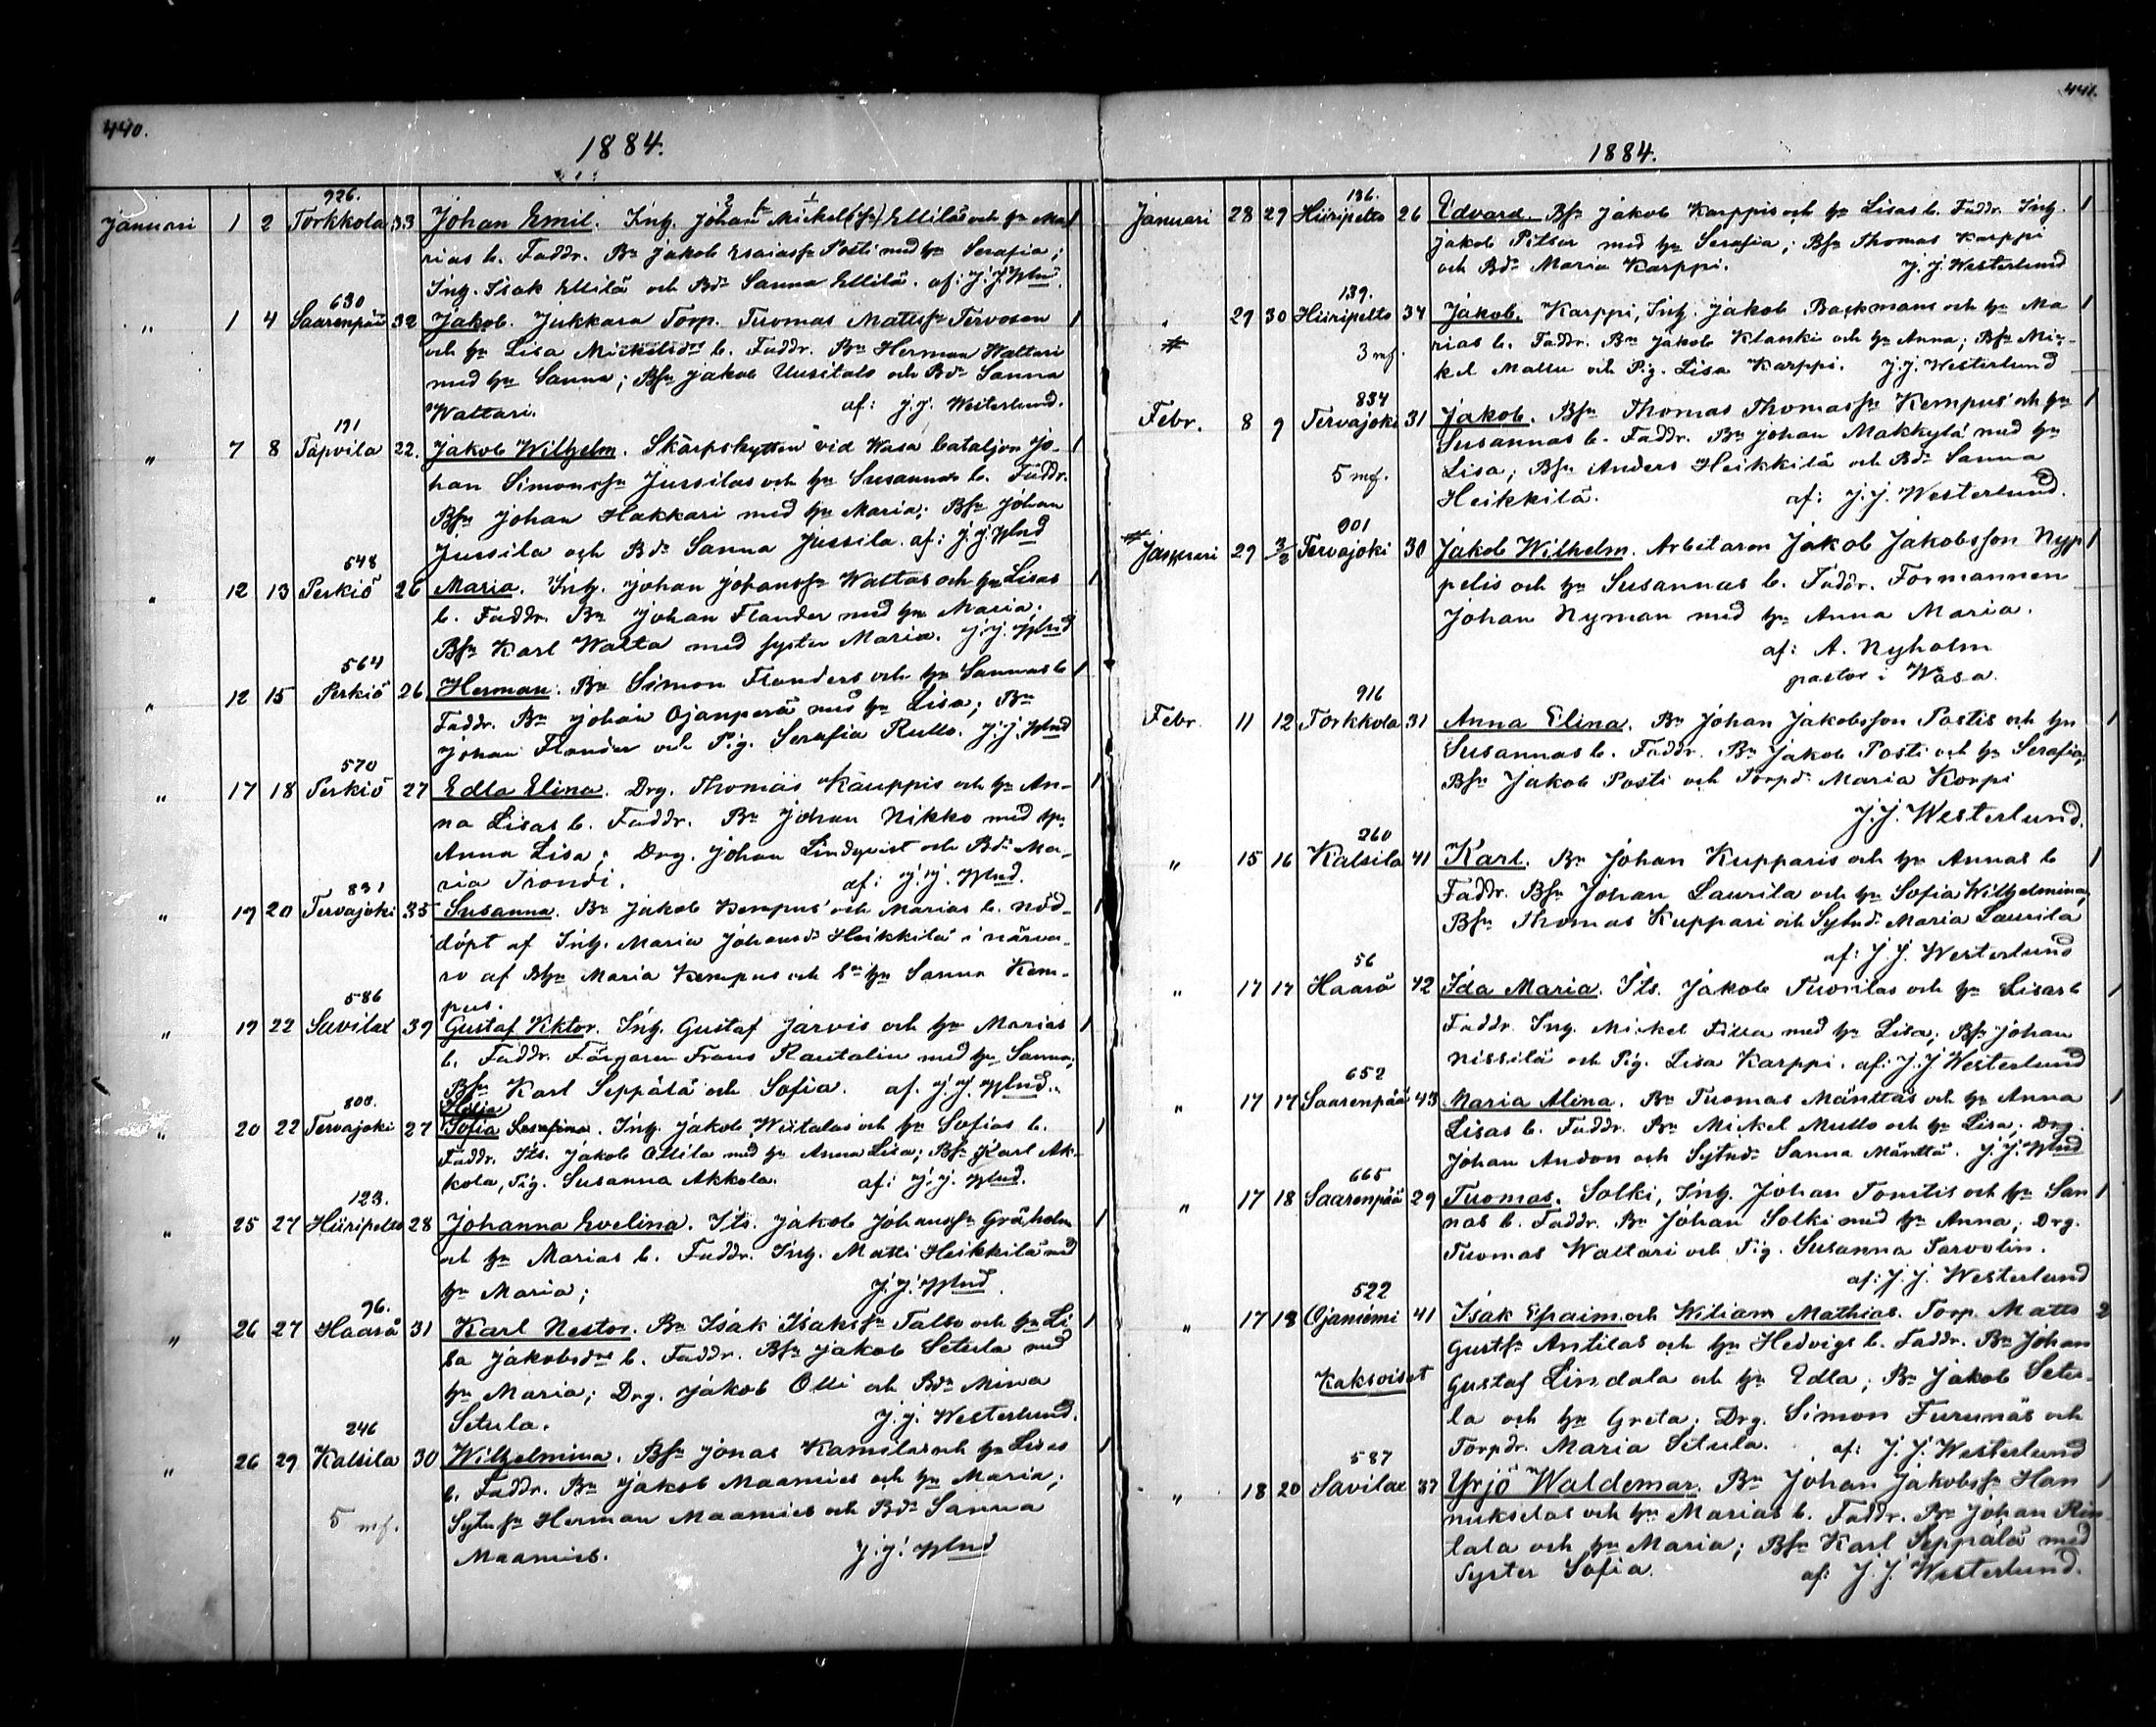 440.
1884.
926.
Januari 1 2 Torkkola 33 Johan Emil. Inh. Johan Mickels(sn) Ellilas och hu Ma 1
rias b. Faddr. Bn Jakob Esaiassn Posti med hu Serafia;
Inh. Isak Ellilä och Bdr Sanna Ellilä. af: J. J. Wlnd.
630
" 1 4 Saarenpää 32 Jakob. Jukkara Torp. Tuomas Mattssn Tervosen 1
och hu Lisa Mickelsdrs b. Faddr. Bn Herman Waltari
med hu Sanna; Bsn Jakob Uusitalo och Bdr Sanna
Waltari. af: J. J. Westerlund.
191
" 7 8 Tapvila 22. Jakob Wilhelm. Skarpskytten vid Wasa bataljon Jo- 1
han Simonssn Jussilas och hu Susannas b. Faddr.
Bsn Johan Hakkari med hu Maria; Bsn Johan
Jussila och Bdr Sanna Jussila. af: J. J. Wlnd
548
" 12 13 Perkiö 26 Maria. Inh. Johan Johanssn Waltas och hu Lisas 1
b. Faddr. Bn Johan Flander med hu Maria.
Bsn Karl Walta med syster Maria. J. J. Wlnd
564
" 12 15 Perkiö 26 Herman. Bn Simon Flanders och hu Sannas b 1
Faddr. Bn Johan Ojanperä med hu Lisa; Bn
Johan Flander och Pig. Serafia Rullo. J. J. Wlnd
570
" 17 18 Perkiö 27 Edla Elina. Drg. Thomas Kauppis och hu An- 1
na Lisas b. Faddr. Bn Johan Nikko med hu
Anna Lisa; Drg. Johan Lindqvist och Bdr Ma-
ria Trondi. af: J. J. Wlnd.
831
" 19 20 Tervajoki 35 Susanna. Bn Jakob Kempus och Marias b. nöd- 1
döpt af Inh. Maria Johansdr Heikkilä i närva-
ro af Bhu Maria Kempus och Snhu Sanna Kem-
pus.
586
" 19 22 Savilax 39 Gustaf Viktor. Inh. Gustaf Jarvis och hu Marias 1
b. Faddr. Färgaren Frans Rautalin med hu Sanna;
Bsn Karl Seppälä och Sofia. af. J. J. Wlnd.
808. Hilja
" 20 22 Tervajoki 27 Sofia Serafina. Inh. Jakob Wiitalas och hu Sofias b. 1
Faddr. Its. Jakob Ollila med hu Anna Lisa; Bsn Karl Ak-
kola, Pig. Susanna Akkola. af: J. J. Wlnd.
123.
" 25 27 Hiiripelto 28 Johanna Evelina. Its. Jakob Johanssn Gråholm 1
och hu Marias b. Faddr. Inh. Matti Heikkilä med
hu Maria; J. J. Wlnd.
96.
" 26 27 Haarå 31 Karl Nestor. Bn Isak Isakssn Talso och hu Li 1
sa Jakobsdrs b. Faddr. Bsn Jakob Setula med
hu Maria; Drg. Jakob Olli och Bdr Mina
Setula. J. J. Westerlund.
246
" 26 29 Kalsila 30 Wilhelmina. Bsn Jonas Kamilas och hu Lisas 1
b. Faddr. Bn Jakob Maamies och hu Maria;
5 mf. Sytnsn Herman Maamies och Bdr Sanna
Maamies. J. J. Wlnd
441.
1884.
136.
Januari 28 29 Hiiripelto 26 Edvard. Bsn Jakob Karppis och hu Lisas b. Faddr. Inh. 1
Jakob Pitser med hu Serafia; Bsn Thomas Karppi
och Bdr Maria Karppi. J. J. Westerlund
139.
" 29 30 Hiiripelto 34 Jakob. Karppi, Inh. Jakob Backmans och hu Ma 1
# 3 mf. rias b. Faddr. Bn Jakob Klauski och hu Anna; Bsn Mic-
kel Mallu och Pig. Lisa Karppi. J. J. Westerlund
834
Febr. 8 9 Tervajoki 31 Jakob. Bsn Thomas Thomassn Kempus och hu 1
Susannas b. Faddr. Bn Johan Makkylä med hu
5 mf. Lisa; Bsn Anders Heikkilä och Bdr Sanna
Heikkilä. af: J. J. Westerlund.
901
# Januari 29 3/2 Tervajoki 30 Jakob Wilhelm. Arbetaren Jakob Jakobsson Nyp 1
pelis och hu Susannas b. Faddr. Formannen
Johan Nyman med hu Anna Maria.
af: A. Nyholm
pastor i Wasa.
916
Febr. 11 12 Torkkola 31 Anna Elina. Bn Johan Jakobsson Postis och hu 1
Susannas b. Faddr. Bn Jakob Posti och hu Serafia;
Bsn Jakob Posti och Torpdr Maria Korpi
J. J. Westerlund.
260
" 15 16 Kalsila 41 Karl. Bn Johan Kupparis och hu Annas b 1
Faddr. Bsn Johan Laurila och hu Sofia Wilhelmina;
Bsn Thomas Kuppari och Sytndr Maria Laurila
af: J. J. Westerlund
56
" 17 17 Haarå 42 Ida Maria. Its. Jakob Tuorilas och hu Lisas b 1
Faddr. Inh. Mickel Filla med hu Lisa; Bsn Johan
Nissilä och Pig. Lisa Karppi. af: J. J. Westerlund
652
" 17 17 Saarenpää 43 Maria Alina. Bn Tuomas Mänttäs och hu Anna 1
Lisas b. Faddr. Bn Mickel Mullo och hu Lisa; Drg.
Johan Andon och Sytndr Sanna Mänttä. J. J. Wlnd
665
" 17 18 Saarenpää 29 Tuomas. Solki, Inh. Johan Tomtis och hu San 1
nas b. Faddr. Bn Johan Solki med hu Anna; Drg.
Tuomas Waltari och Pig. Susanna Tarvolin.
af: J. J. Westerlund
522
" 17 18 Ojaniemi 41 Isak Efraim och Wiliam Mathias. Torp. Matts 2
Gustfsn Antilas och hu Hedvigs b. Faddr. Bn Johan
Kaksoiset Gustaf Lindala och hu Edla; Bn Jakob Setu-
la och hu Greta; Drg. Simon Furunäs och
Torpdr. Maria Setula. af: J. J. Westerlund
587
" 18 20 Savilax 37 Yrjö Waldemar. Bn Johan Jakobssn Han 1
nukselas och hu Marias b. Faddr. Bn Johan Rin
tala och hu Maria; Bsn Karl Seppälä med
Syster Sofia. af: J. J. Westerlund.